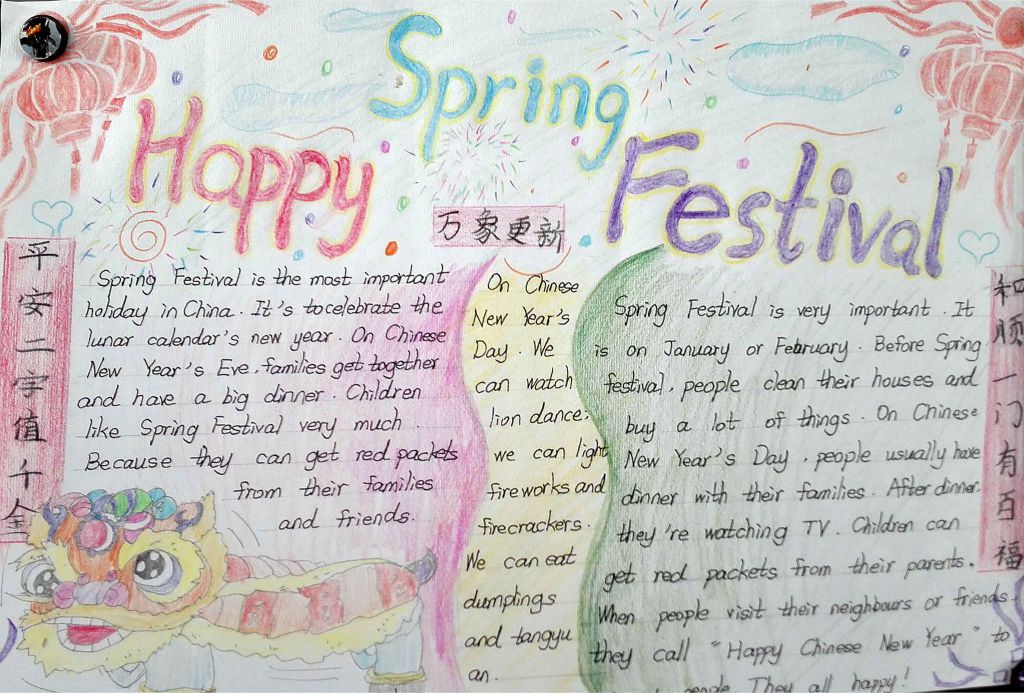 Happy Spring Festival
万象更新
平安二字值千金
和顺一门有百福
Spring Festival is the most important
holiday in China. It's tocelebrate the
lunar calendar's new year. On Chinese
New Year's Eve. families get together
and have a big dinner. Children
like Spring Festival very much.
Because they can get red packets
from their families
and friends.
On Chinese
New Year's
Day. We
can watch
lion dance.
we can light
fireworks and
firecrackers.
We can eat
dumplings
and tangyu
an.
Spring Festival is very important. It
is on January or February. Before Spring
festival, people clean their houses and
buy a lot of things. On Chinese
New Year's Day, people usually have
dinner with their families. After dinner.
they're watching TV. Children can
get red packets from their parents.
When people visit their neighbours or friends.
they call "Happy Chinese New Year" to
people They all happy!